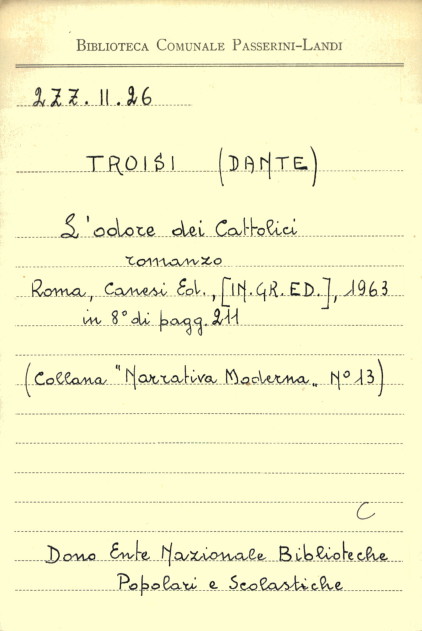 BIBLIOTECA COMUNALE PASSERINI-LANDI
2ZZ.II.26
TROISI (DANTE)
L'odore dei Cattolici
romanzo
Roma, Canesi Ed., [IN.GR.ED.], 1963
in 8° di pagg. 211
(Collana "Narrativa Moderna„ Nº 13)
C
Dono Ente Nazionale Biblioteche
Popolari e Scolastiche